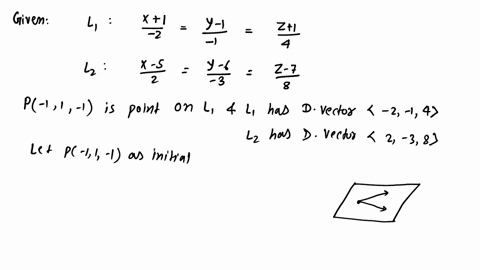 Given: L₁ : (x+1)/-2 = (y-1)/-1 = (z+1)/4
L₂ : (x-5)/2 = (y-6)/-3 = (z-7)/8
P(-1,1,-1) is point on L₁ & L₁ has D.vector < -2, -1, 4>
L₂ has D.vector < 2, -3, 8>
Let P(-1,1,-1) as initial